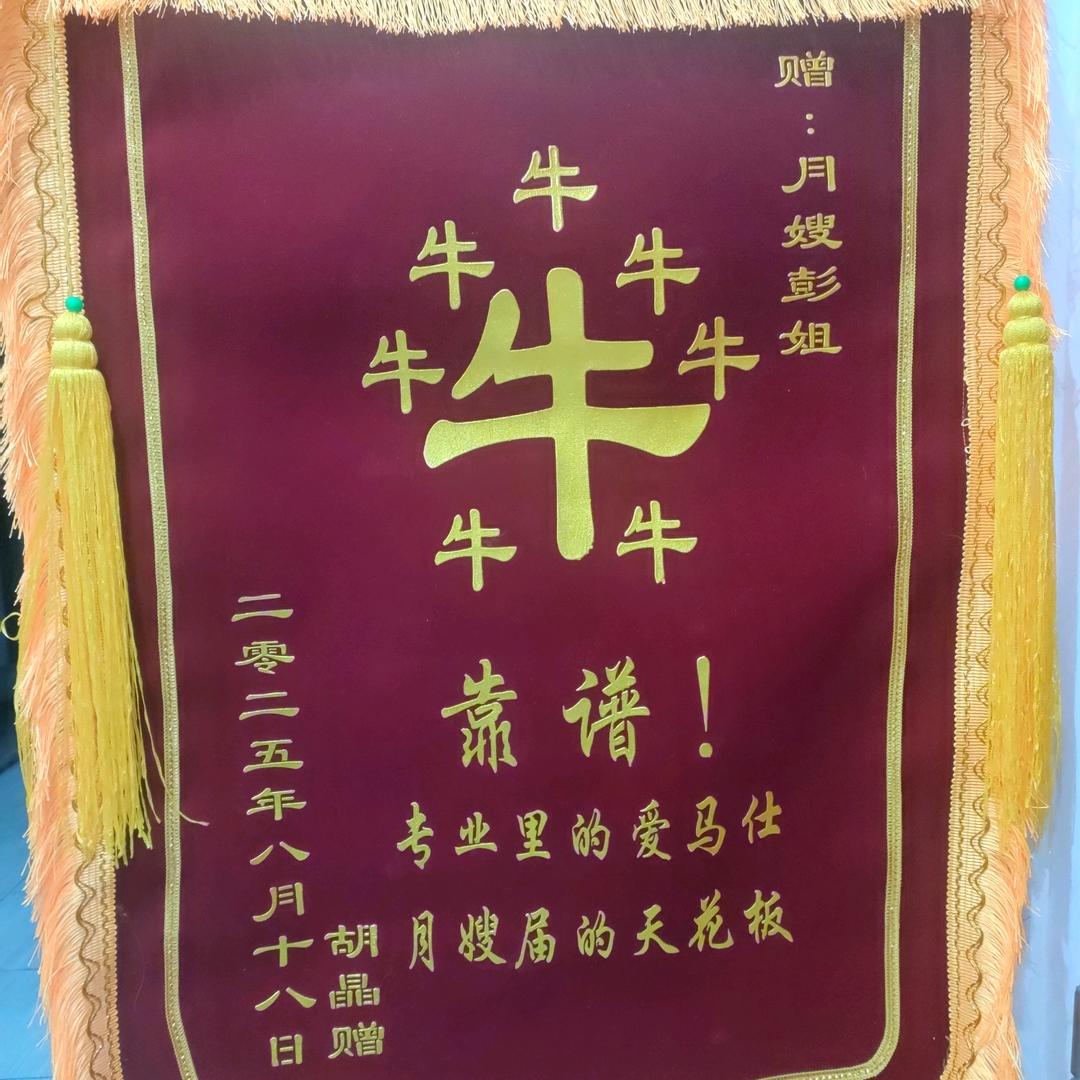 赠:月嫂彭姐
牛
牛 牛
牛 牛 牛
牛 牛
靠谱!
专业里的爱马仕
月嫂届的天花板
胡晶赠
二零二五年八月十八日